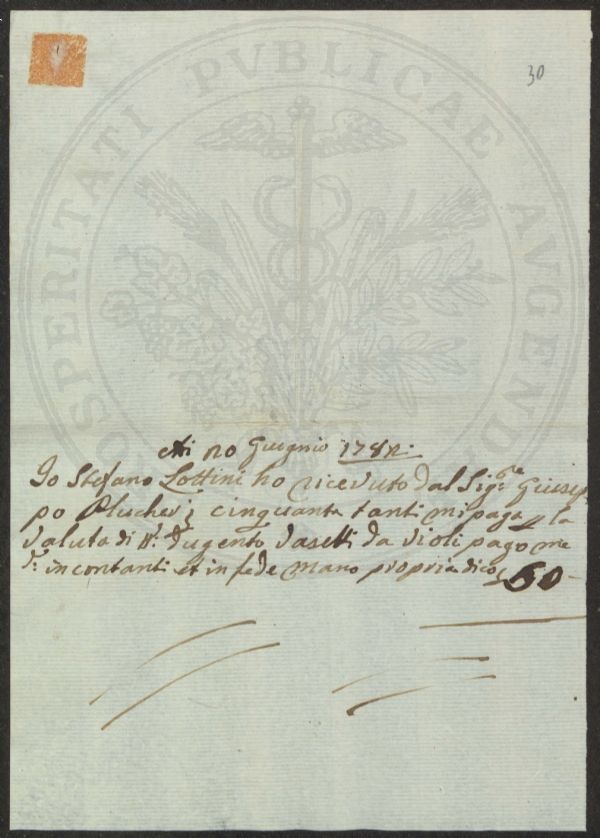 30
PROSPERITATI PVBLICAE AVGENDAE
Ai 20 Giugnio 1782.
Io Stefano Lottini ho riceuuto dal Sig:re Giusep
po cinquanta tanti mi paga p la
Valuta di N. dugento Vasetti da violi pago me
d.i in contanti et in fede mano propria dico 50